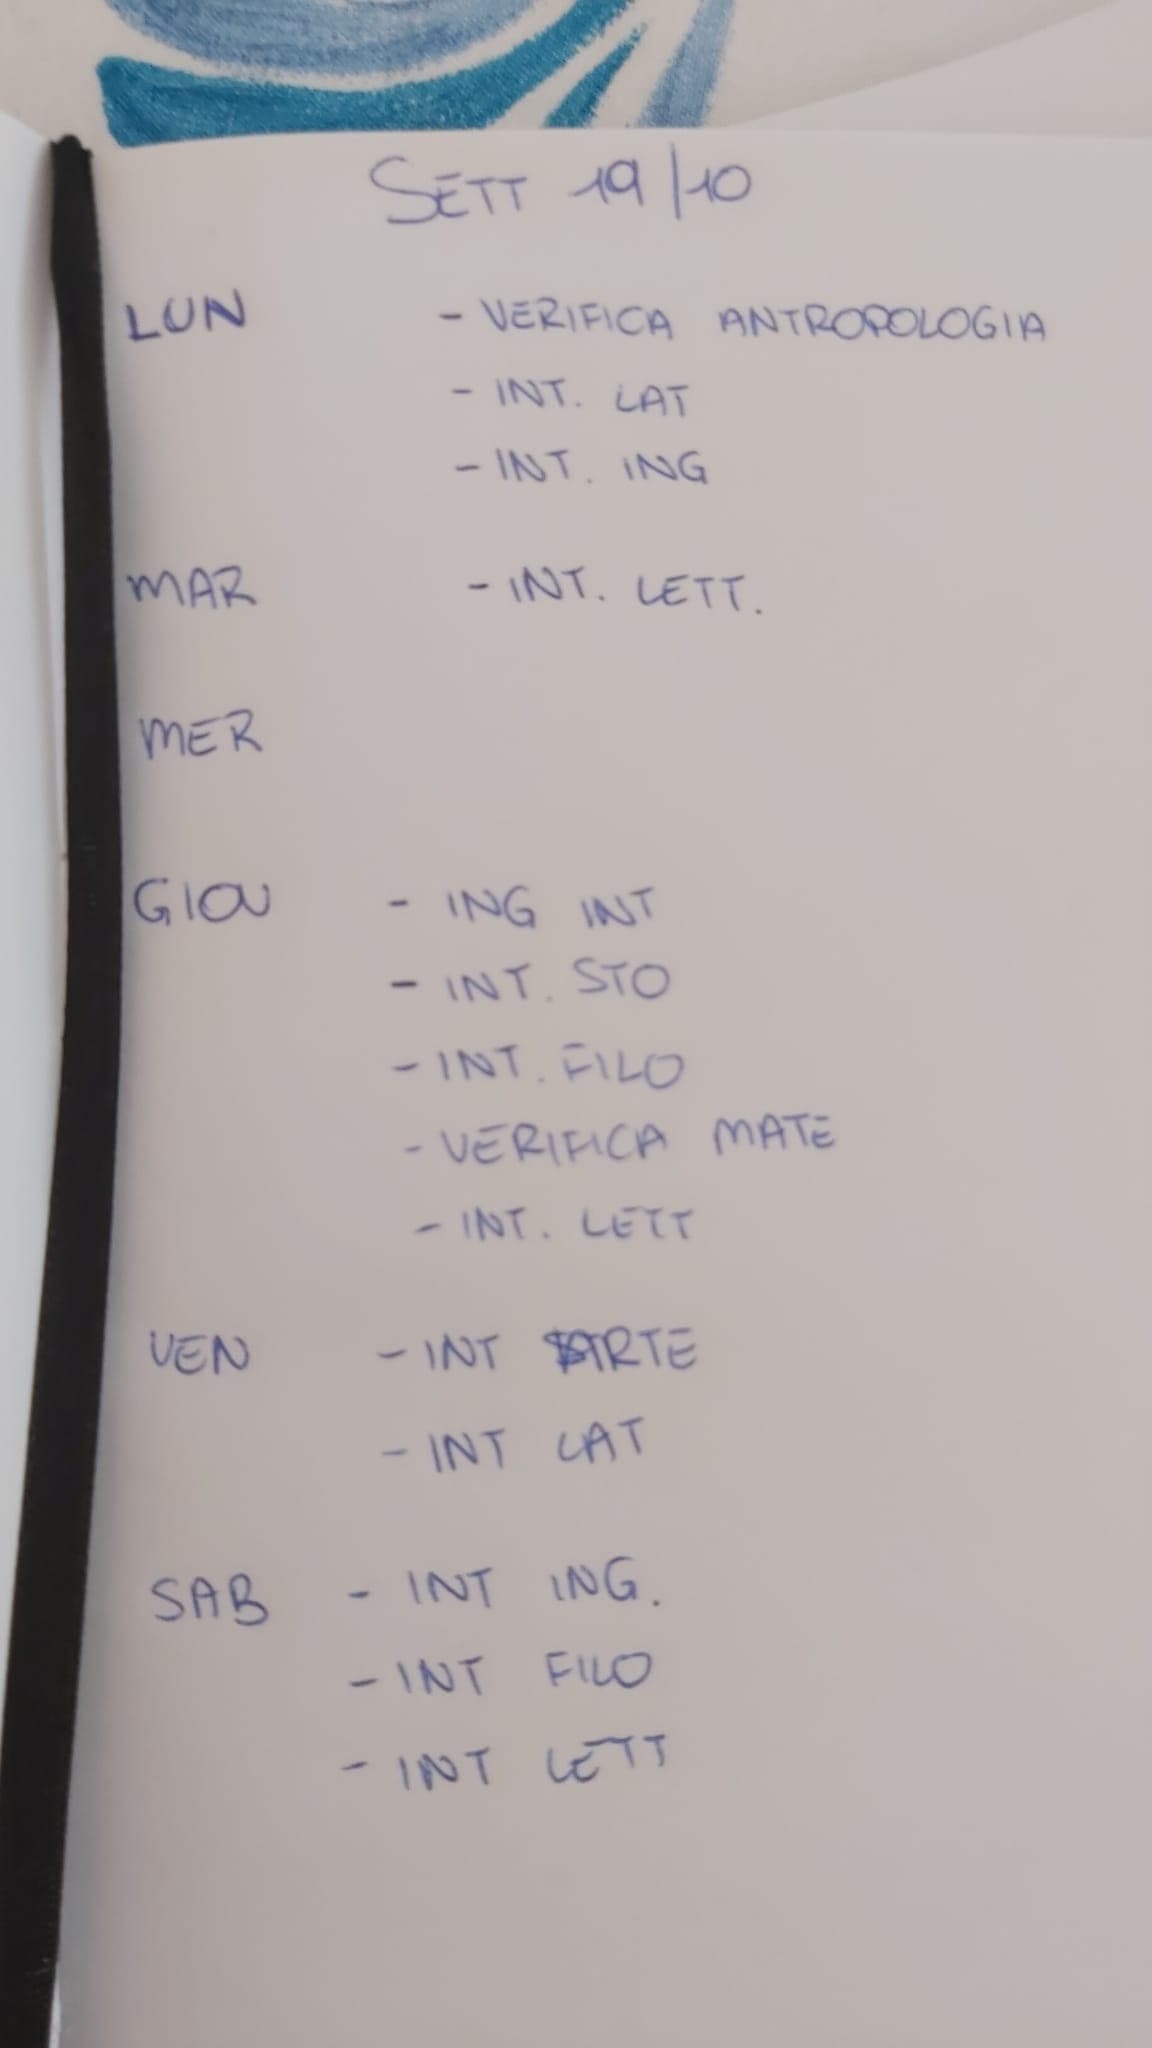 SETT 19/10
LUN - VERIFICA ANTROPOLOGIA
- INT. LAT
- INT. ING
MAR - INT. LETT.
MER
GIOV - ING INT
- INT. STO
- INT. FILO
- VERIFICA MATE
- INT. LETT
VEN - INT ARTE
- INT LAT
SAB - INT ING.
- INT FILO
- INT LETT